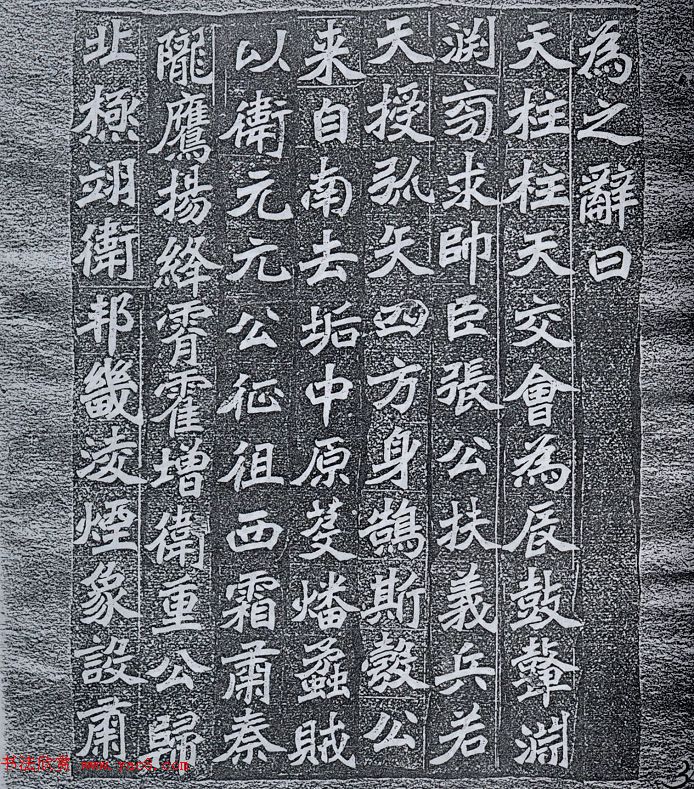 為之辭曰
天柱柱天交會為辰鼓鼙淵
渕旁求帥臣張公扶義兵若
天授弧矢四方身鵠斯彀公
来自南去垢中原芟燔蟊賊
以衛元元公征徂西霜肅秦
隴鷹揚絳霄霍增衛重公歸
北極翊衛邦畿淩煙象設肅
书法欣赏 www.yac8.com
3